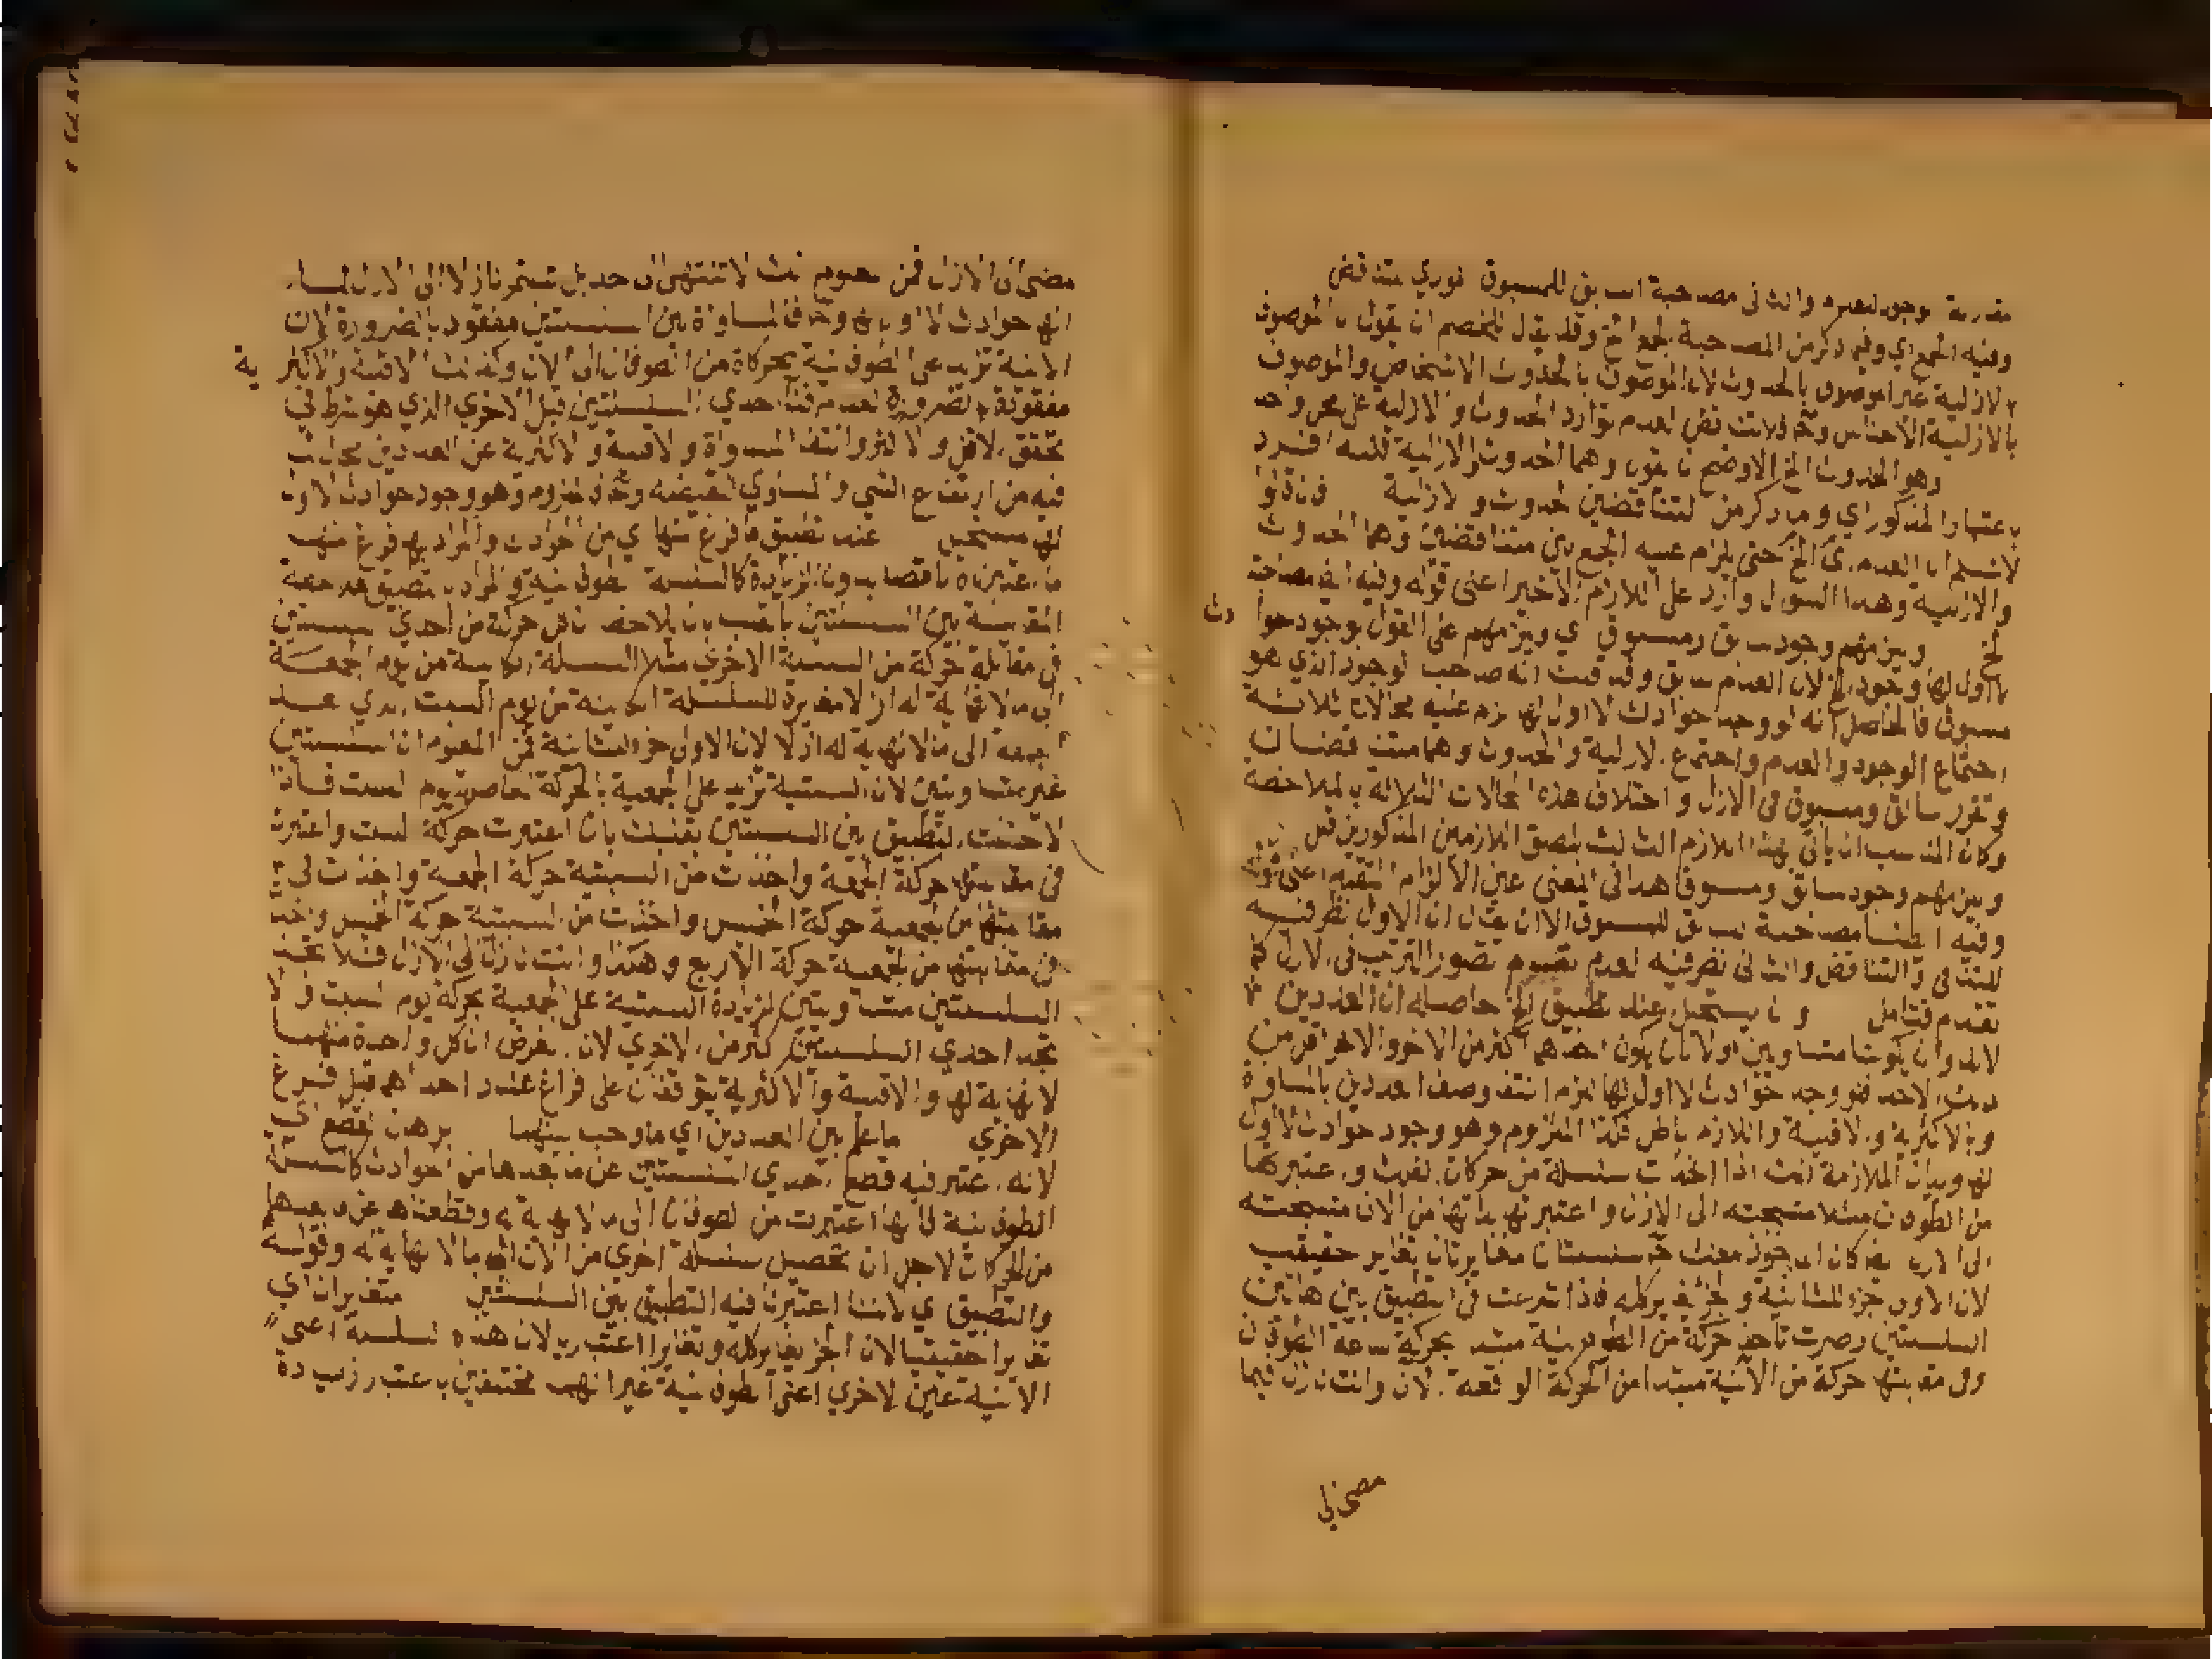 مقارنة وجود لعدمه والثانى مصاحبة السابق للمسبوق فورى متناقض
وفيه الجمع اي وفيما ذكر من المصاحبة لجمع الخ وقد يقال للخصم ان يقول بالموصوف
بالازلية غير الموصوف بالحدوث لان الموصوف بالحدوث الاشخاص والموصوف
بالازلية الاجناس وح فلا تناقض لعدم توارد الحدوث والازلية على محل واحد
وهو الحدوث الخ الاوضح ان يقول وهما الحدوث والازلية للسه افرد
باعتبار المذكور اي وما ذكر من المتناقضين الحدوث والازلية فان قالوا
لا نسلم ان العدم الخ حتى يلزم عليه الجمع بين متناقضين وهما الحدوث
والازلية وهذا السؤال وارد على اللازم الاخير اعنى قوله وفيه ايض مصاحبة
الخ ويلزمهم وجود سابق ومسبوق اي ويلزمهم على القول بوجود حوادث
لا اول لها وجود الخ لان العدم سابق وقد قلت انه صاحب الوجود الذي هو
مسبوق فالحاصل انه لو وجد حوادث لا اول لها لزم عليه محالات ثلاثة
اجتماع الوجود والعدم واجتماع الازلية والحدوث وهما متناقضان
وتقرر سابق ومسبوق فى الازل واختلاف هذه المحالات الثلاثة بالملاحظة
وكان المناسب ان ياتى بهذا اللازم الثالث بلصق اللازمين المذكورين قبل
ويلزمهم وجود سابق ومسبوق هذا فى المعنى عين الالزام المتقدم اعنى قوله
وفيه ايضا مصاحبة السابق للمسبوق الا ان يقال ان الاول نظر فيه
للتنافى والتناقض والثانى نظر فيه لعدم تصور الترتيب فى الازل كما
تقدم فتامل وان يستحيل عند تطبيق الخ حاصله ان العددين
لا بد وان يكونا متساويين او لا بان يكون احدهما اكثر من الاخر والاخر اقل من
ذلك الاحد فلو وجد حوادث لا اول لها لزم انتفا وصف العددين بالمساواة
وبالاكثرية والاقلية واللازم باطل فكذا الملزوم وهو وجود حوادث لا اول
لها وبيان الملازمة انك اذا اخذت سلسلة من حركات الفلك واعتبرتها
من الطوفان مثلا متسحبة الى الازل واعتبرتها بذاتها من الان متسحبة
الى الازل فلو كان الماخوذ معك ح سلسلتان متغايرتان تغاير حقيقيا
لان الاولى جزء للثانية والجزء يغاير كله فاذا شرعت فى التطبيق بين هاتين
السلسلتين وصرت تاخذ حركة من الطوفانية مبتدا بحركة ساعة الطوفان
وفى مقابلتها حركة من الانية مبتدا من الحركة الواقعة الان وانت نازل فيما
مضى الى
مضى الى الازل فمن المعلوم انك لا تنتهى الى حد بل تستمر نازلا الى الازل لما
انها حوادث لا اول لها وح فالمساواة بين السلسلتين مفقود بالضرورة لان
الانية تزيد على الطوفانية بحركات من الطوفان الى الان وكذلك الاقلية والاكثرية
مفقودة بالضرورة لعدم فنا احدي السلسلتين قبل الاخري الذي هو شرط في
تحقق الاقل والاكثر وانتفا المساواة والاقلية والاكثرية عن العددين محال لما
فيه من ارتفاع الشي والمساوي لنقيضه وح فالملزوم وهو وجود حوادث لا اول
لها مستحيل عند تطبيق ما فرغ منها اي من الحوادث والمراد بما فرغ منها
ما اعتبرناه ناقصا بدون الزيادة كالسلسلة الطوفانية والمراد بالتطبيق هنا جعل
المقابلة بين السلسلتين بالقلب بان يلاحظ ان كل حركة من احدي السلسلتين
فى مقابلة حركة من السلسلة الاخري مثلا السلسلة الكاينة من يوم الجمعة
الى ما لا نهاية له ازلا مغايرة للسلسلة الكاينة من يوم السبت الذي بعد
الجمعة الى ما لا نهاية له ازلا لان الاول جزء الثانية فمن المعلوم ان السلسلتين
غير متساويتين لان السبتية تزيد على الجمعية بالحركة الحاصلة يوم السبت فاذا
لاحظت التطبيق بين السلسلتين بقلبك بان اعتبرت حركة السبت واعتبرت
فى مقابلتها حركة الجمعة واخذت من السبتية حركة الجمعة واخذت فى
مقابلتها من الجمعية حركة الخميس واخذت من السبتية حركة الخميس واخذت
فى مقابلتها من الجمعية حركة الاربع وهكذا وانت نازل الى الازل فلا تجد
السلسلتين متساويتين لزيادة السبتية على الجمعية بحركة يوم السبت ولا
تجد احدي السلسلتين اكثر من الاخري لان الفرض ان كل واحدة منهما
لا نهاية لها والاقلية والاكثرية يتوقفان على فراغ عدد احداهما قبل فراغ
الاخري ما علم بين العددين اي ما وجب بينهما برهان القطع اي
لانه اعتبر فيه قطع احدي السلسلتين عن ما بعدها من الحوادث كالسلسلة
الطوفانية فانها اعتبرت من الطوفان الى ما لا نهاية له وقطعناها عن ما بعدها
من الحركات لاجل ان تحصيل سلسلة اخرى من الان الى ما لا نهاية له وقوله
والتطبيق اي لاننا اعتبرنا فيه التطبيق بين السلسلتين متغايران اي
تغايرا حقيقيا لان الجزء يغاير كله وتغايرا اعتباريا لان هذه السلسلة اعنى
الانية عين الاخري اعنى الطوفانية غير انهما مختلفين باعتبار زيادة